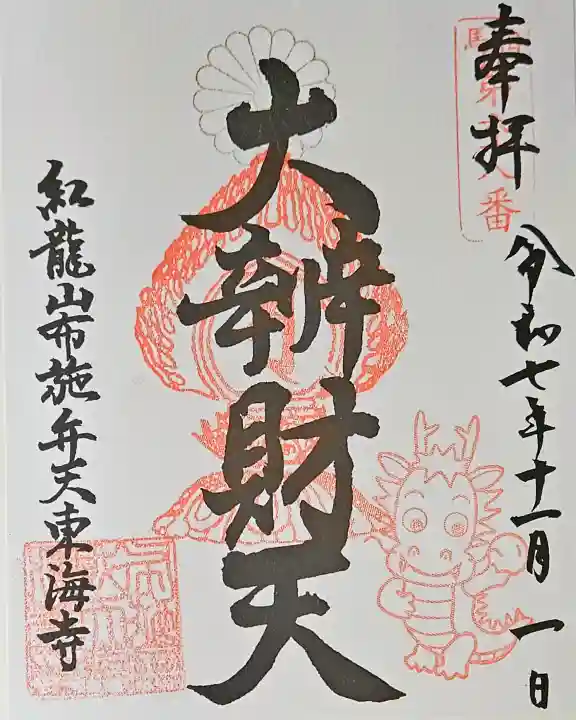 奉拝
令和七年十一月一日
大辨財天
紅龍山布施弁天東海寺